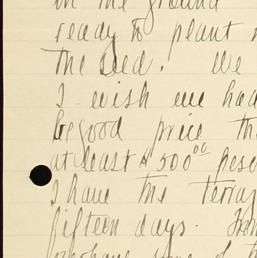 in the ground
ready to plant
the seed. We
I wish we had
be good price
at least $500.00 pesos
I have the
fifteen days.